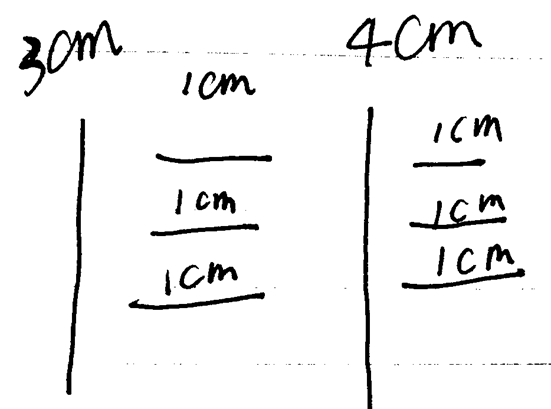 3cm 4cm
1cm 1cm
1cm 1cm
1cm 1cm